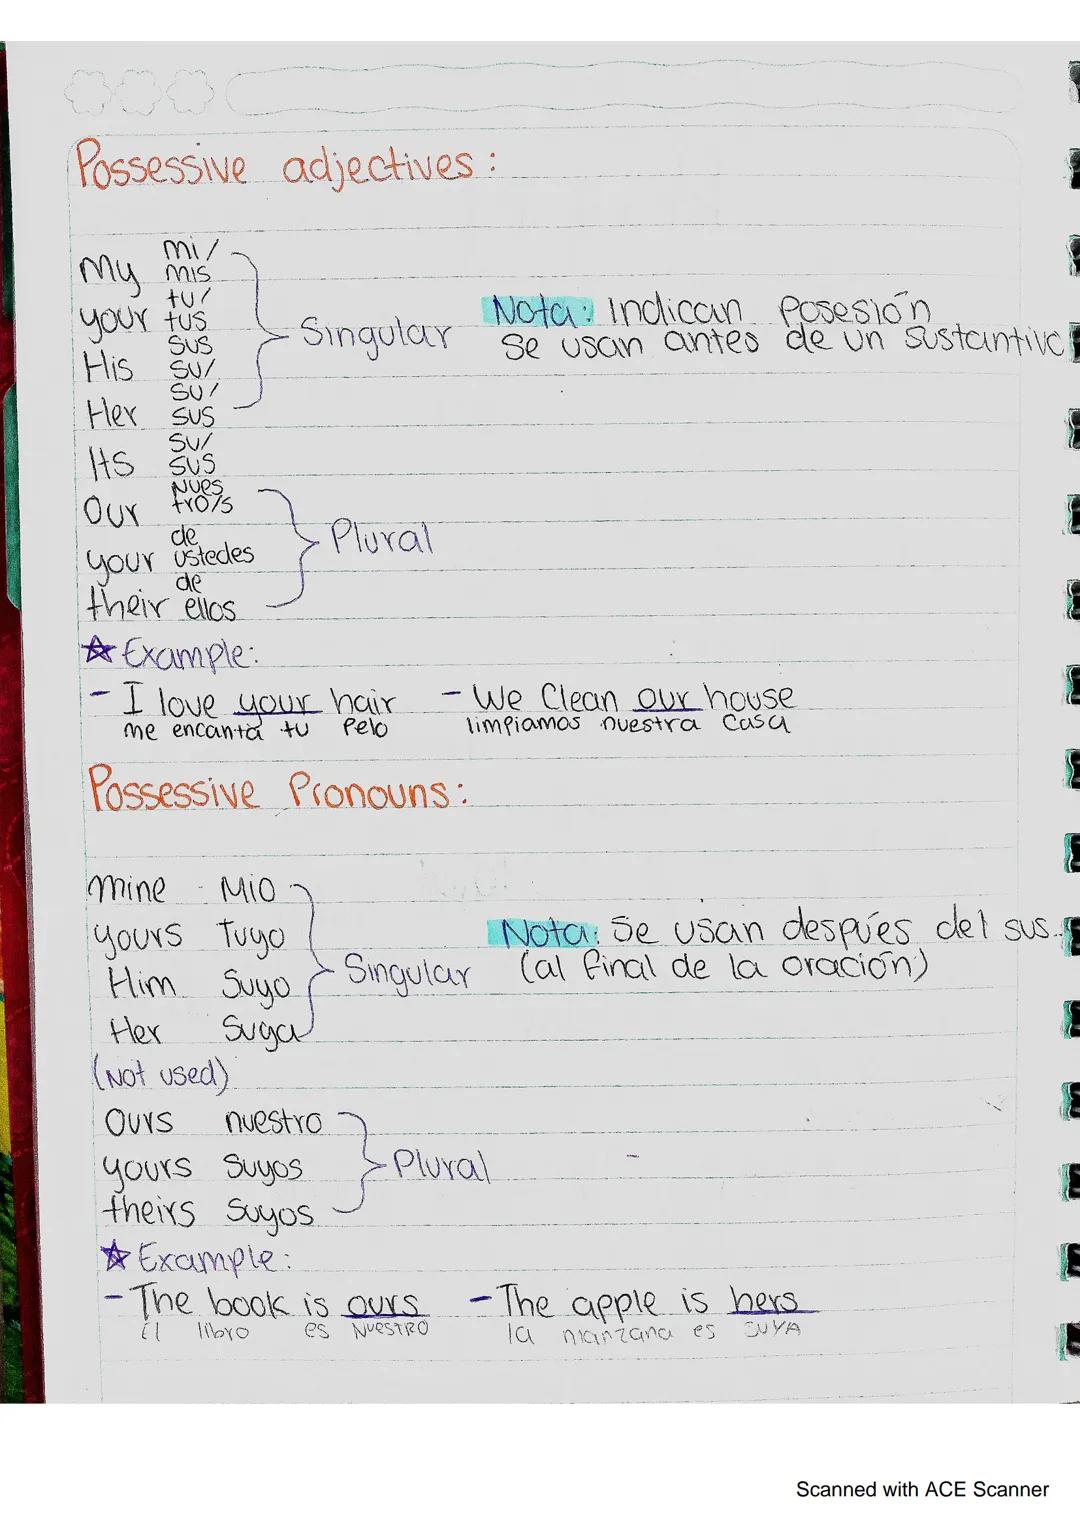 Possessive adjectives:
My mi/ mis
your tu/ tus
His sus su/
Her su/ sus
Singular
Nota: Indican posesión
se usan antes de un sustantivo
Its su/ sus
Our Nues tro/s
your de ustedes
their de ellos
Plural
☆ Example:
- I love your hair - We Clean our house
me encanta tu pelo limpiamos nuestra casa
Possessive Pronouns:
mine - Mio
yours Tuyo
Him Suyo
Her Suya
Singular
Nota: Se usan despúes del sus..
(al final de la oración)
(Not used)
Ours nuestro
yours Suyos
theirs Suyos
Plural
☆ Example:
- The book is ours - The apple is hers
El libro es NUESTRO la manzana es SUYA
Scanned with ACE Scanner